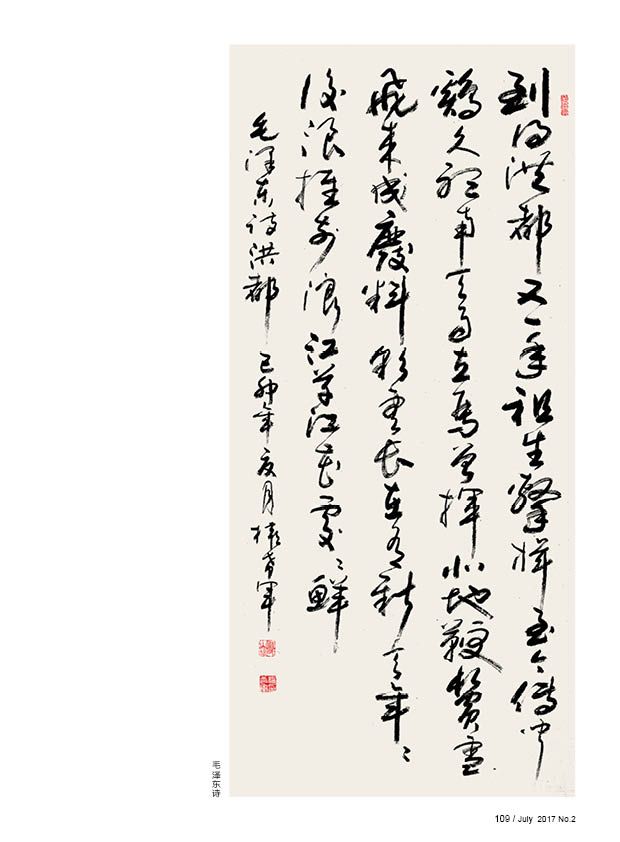 到得洪都又一年祖生擊楫至今傳聞
鷄久聽南天雨立馬曾揮北地鞭鬢雪
飛来成廢料彩雲長在有新天年〻
後浪推前浪江草江花處〻鮮
毛泽东诗洪都 己卯年夏月
毛泽东诗
109 / July 2017 No.2